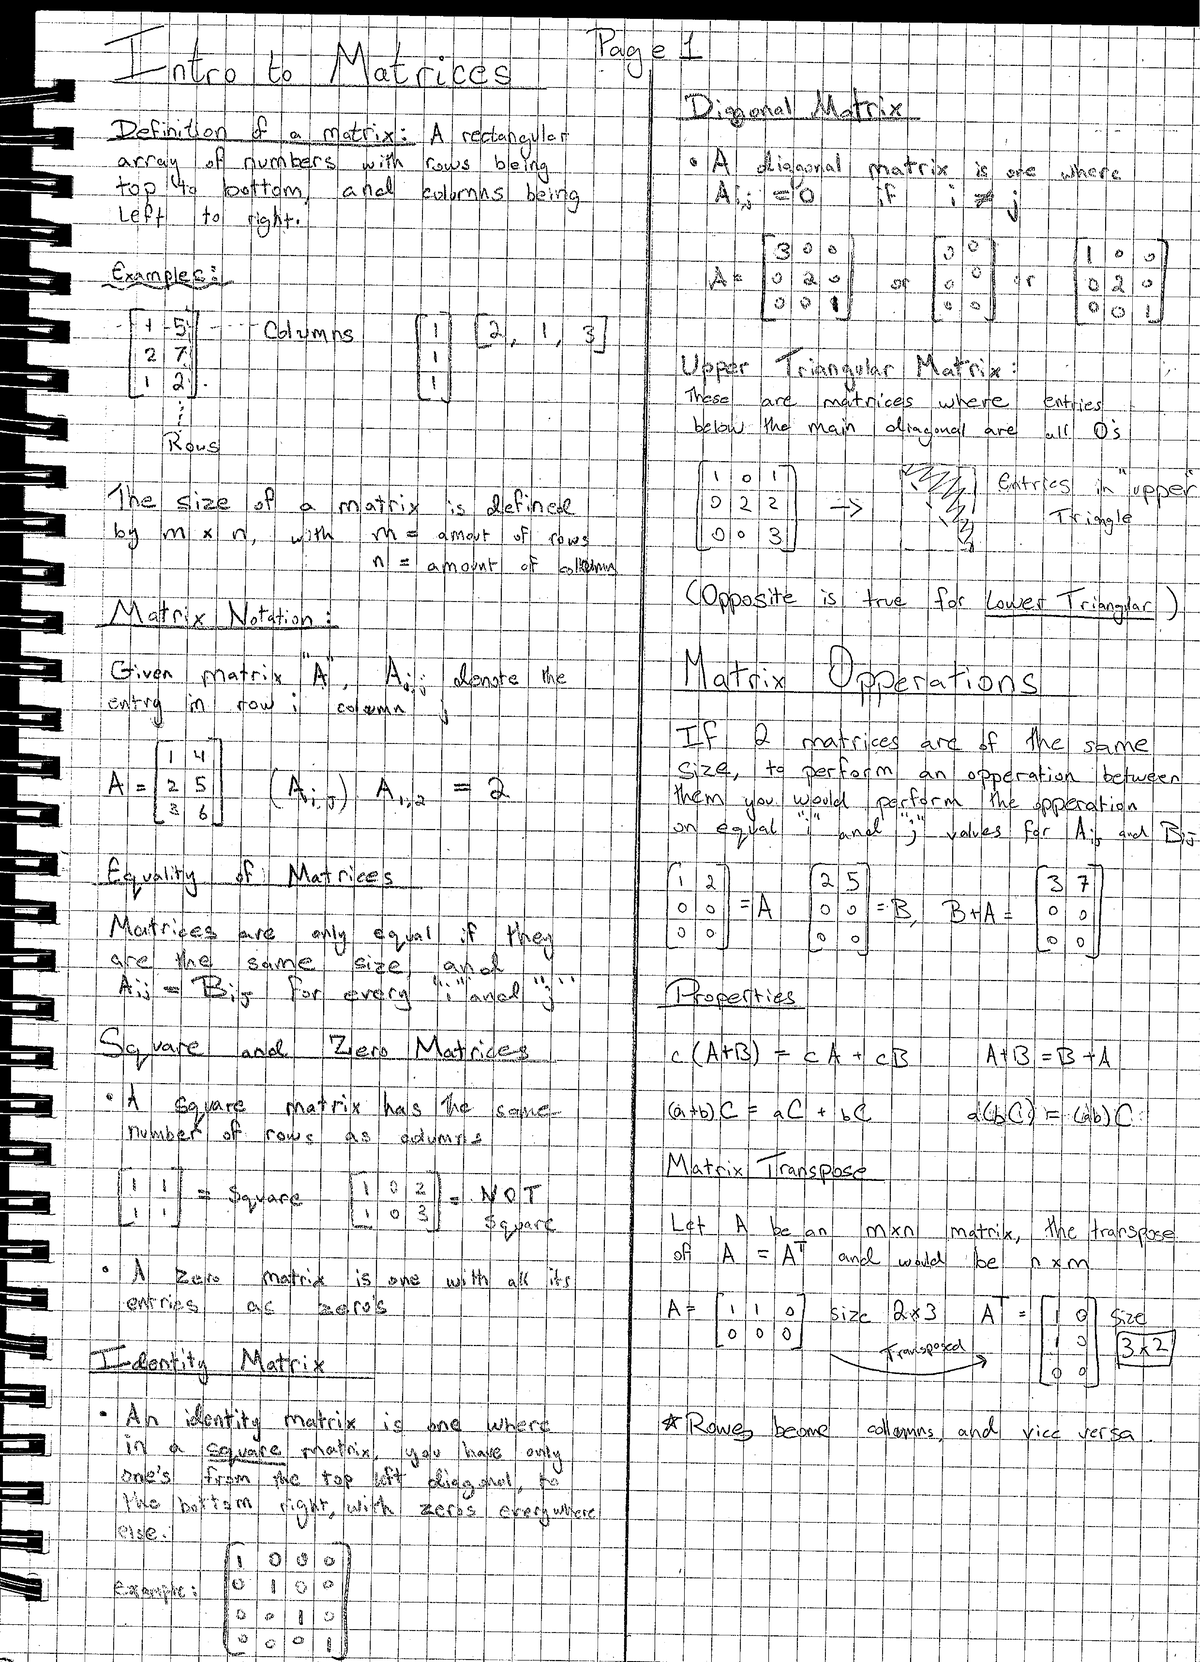 Intro to Matrices
Page 1
Definition of a matrix: A rectangular
array of numbers with rows being
top to bottom, and columns being
Left to right.
Examples:
1 5
2 7
1 2
Columns
Rows
1
1
1
[2, 1, 3]
The size of a matrix is defined
by m x n, with m = amout of rows
n = amount of column
Matrix Notation:
Given matrix "A", Aij denote the
entry in row i column j
A = 1 4
2 5
3 6
(Ai,j) A1,2 = 2
Equality of Matrices
Matrices are only equal if they
are the same size and
Aij = Bij for every "i" and "j"
Square and Zero Matrices
• A square matrix has the same
number of rows as columns
1 1
1 1
= Square
1 0 2
1 0 3
= NOT
Square
• A zero matrix is one with all its
entries as zero's
Identity Matrix
• An identity matrix is one where
in a square matrix, you have only
one's from the top left diagonal, to
the bottom right, with zeros everywhere
else.
example:
1 0 0 0
0 1 0 0
0 0 1 0
0 0 0 1
Diagonal Matrix
• A diagonal matrix is one where
Aij = 0 if i ≠ j
A = 3 0 0
0 2 0
0 0 1
or
0 0
0 0
0 0
or
1 0 0
0 2 0
0 0 1
Upper Triangular Matrix:
These are matrices where entries
below the main diagonal are all 0's
1 0 1
0 2 2
0 0 3
->
Entries in "upper"
Triangle
(Opposite is true for Lower Triangular)
Matrix Opperations
If 2 matrices are of the same
size, to perform an opperation between
them you would perform the opperation
on equal "i" and "j" values for Aij and Bij
1 2
0 0
0 0
= A
2 5
0 0
0 0
= B, B+A =
3 7
0 0
0 0
Properties
c(A+B) = cA + cB A+B = B+A
(a+b)C = aC + bC a(bC) = (ab)C
Matrix Transpose
Let A be an mxn matrix, the transpose
of A = Aᵀ and would be nxm
A = 1 1 0
0 0 0
size 2x3
Transposed
Aᵀ = 1 0
1 0
0 0
size
3x2
* Rows become collumns, and vice versa.